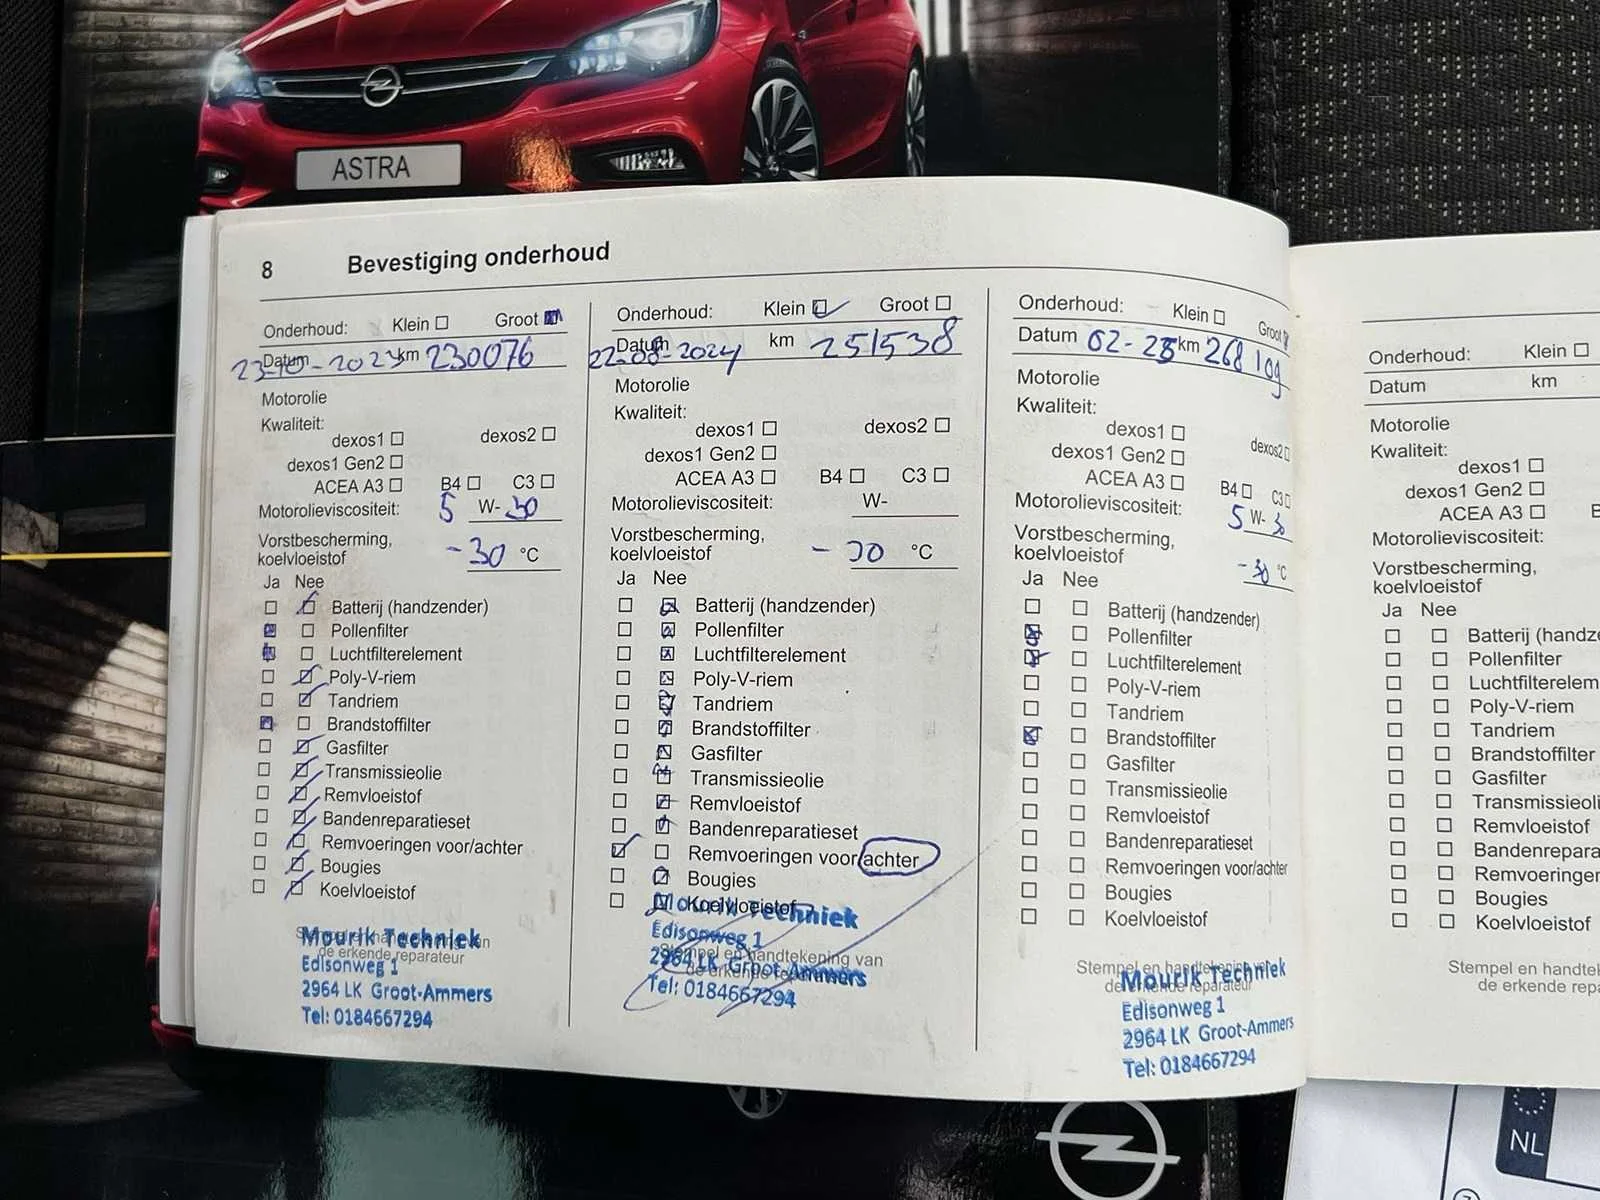 ASTRA
8 Bevestiging onderhoud
Onderhoud: Klein Groot
Datum 23-10-2023 km 230076
Motorolie
Kwaliteit:
dexos1 dexos2
dexos1 Gen2
ACEA A3 B4 C3
Motorolieviscositeit: 5 W-30
Vorstbescherming,
koelvloeistof -30 °C
Ja Nee
Batterij (handzender)
Pollenfilter
Luchtfilterelement
Poly-V-riem
Tandriem
Brandstoffilter
Gasfilter
Transmissieolie
Remvloeistof
Bandenreparatieset
Remvoeringen voor/achter
Bougies
Koelvloeistof
Stempel en
de erkende reparateur
Mourik Techniek
Edisonweg 1
2964 LK Groot-Ammers
Tel: 0184667294
Onderhoud: Klein Groot
Datum 22-08-2024 km 251538
Motorolie
Kwaliteit:
dexos1 dexos2
dexos1 Gen2
ACEA A3 B4 C3
Motorolieviscositeit: W-
Vorstbescherming,
koelvloeistof -30 °C
Ja Nee
Batterij (handzender)
Pollenfilter
Luchtfilterelement
Poly-V-riem
Tandriem
Brandstoffilter
Gasfilter
Transmissieolie
Remvloeistof
Bandenreparatieset
Remvoeringen voor/achter
Bougies
Koelvloeistof
Stempel en handtekening van
de erkende
Mourik Techniek
Edisonweg 1
2964 LK Groot-Ammers
Tel: 0184667294
Onderhoud: Klein Groot
Datum 02-25 km 268109
Motorolie
Kwaliteit:
dexos1 dexos2
dexos1 Gen2
ACEA A3 B4 C3
Motorolieviscositeit: 5 W-3
Vorstbescherming,
koelvloeistof -30 °C
Ja Nee
Batterij (handzender)
Pollenfilter
Luchtfilterelement
Poly-V-riem
Tandriem
Brandstoffilter
Gasfilter
Transmissieolie
Remvloeistof
Bandenreparatieset
Remvoeringen voor/achter
Bougies
Koelvloeistof
Stempel en handtekening
de erkende reparateur
Mourik Techniek
Edisonweg 1
2964 LK Groot-Ammers
Tel: 0184667294
Onderhoud: Klein
Datum km
Motorolie
Kwaliteit:
dexos1
dexos1 Gen2
ACEA A3 B
Motorolieviscositeit:
Vorstbescherming,
koelvloeistof
Ja Nee
Batterij (handze
Pollenfilter
Luchtfilterelem
Poly-V-riem
Tandriem
Brandstoffilter
Gasfilter
Transmissieoli
Remvloeistof
Bandenrepara
Remvoeringen
Bougies
Koelvloeistof
Stempel en handtek
de erkende repa
NL